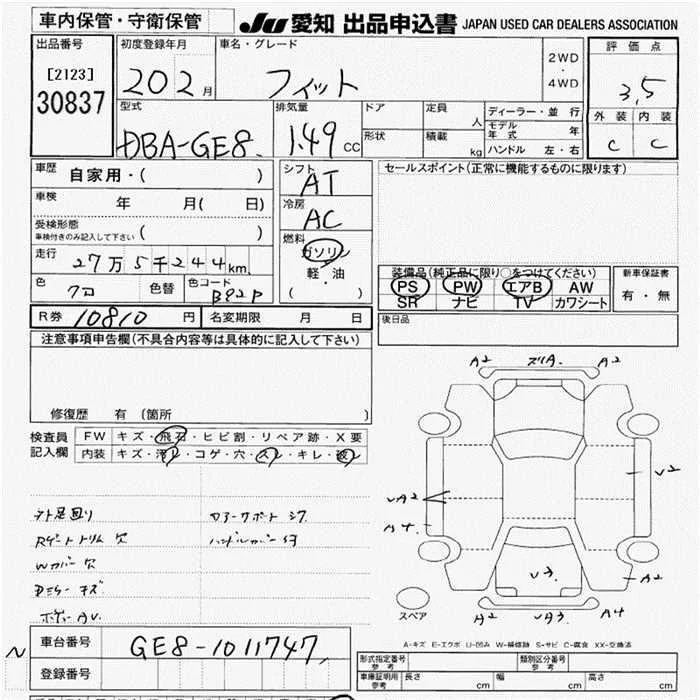 車内保管・守衛保管
JU 愛知 出品申込書 JAPAN USED CAR DEALERS ASSOCIATION
出品番号
[2123]
30837
初度登録年月
202月
車名・グレード
フィット
2WD
・
4WD
評価点
3,5
外装 内装
C C
型式
DBA-GE8
排気量
1.49 CC
ドア
形状
定員 人
積載 kg
ディーラー・並行
モデル年式 年
ハンドル 左・右
車歴 自家用・( )
車検 年 月( 日)
受検形態
車検付きのみ記入して下さい ( )
走行 27万5千244km
色 クロ
色替
色コード B92P
シフト AT
冷房 AC
燃料
ガソリン
・
軽油
( )
セールスポイント(正常に機能するものに限ります)
装備品(純正品に限り○をつけてください)
PS PW エアB AW
SR ナビ TV カワシート
新車保証書
有・無
R券 10810 円 名変期限 月 日
後日品
注意事項申告欄(不具合内容等は具体的に記入して下さい)
修復歴 有 (箇所 )
検査員
記入欄
FW キズ・飛石・ヒビ割・リペア跡・X要
内装 キズ・汚レ・コゲ・穴・スレ・キレ・破レ
外 足回り
Rゲートトリム 穴
Wカバー 穴
Dミラー キズ
ハンドルカバー
A2 A2
U2
UA2
A4
A2
U3
A2 UA3 A4
スペア
A-キズ E-エクボ U-凹み W-補修跡 S-サビ C-腐食 XX-交換済
車台番号 GE8-1011747
登録番号
形式指定番号
参考
類別区分番号
参考
車庫証明用
参考
長さ cm 幅 cm 高さ cm